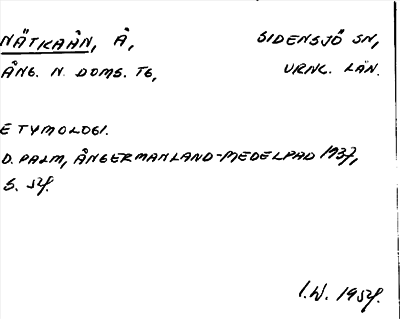 NÄTKAÅN, Å, SIDENSJÖ SN,
ÅNG. N. DOMS. TG, URNL. LÄN.
ETYMOLOGI.
D. PALM, ÅNGERMANLAND-MEDELPAD 1937,
S. 54.
I.W. 1954.